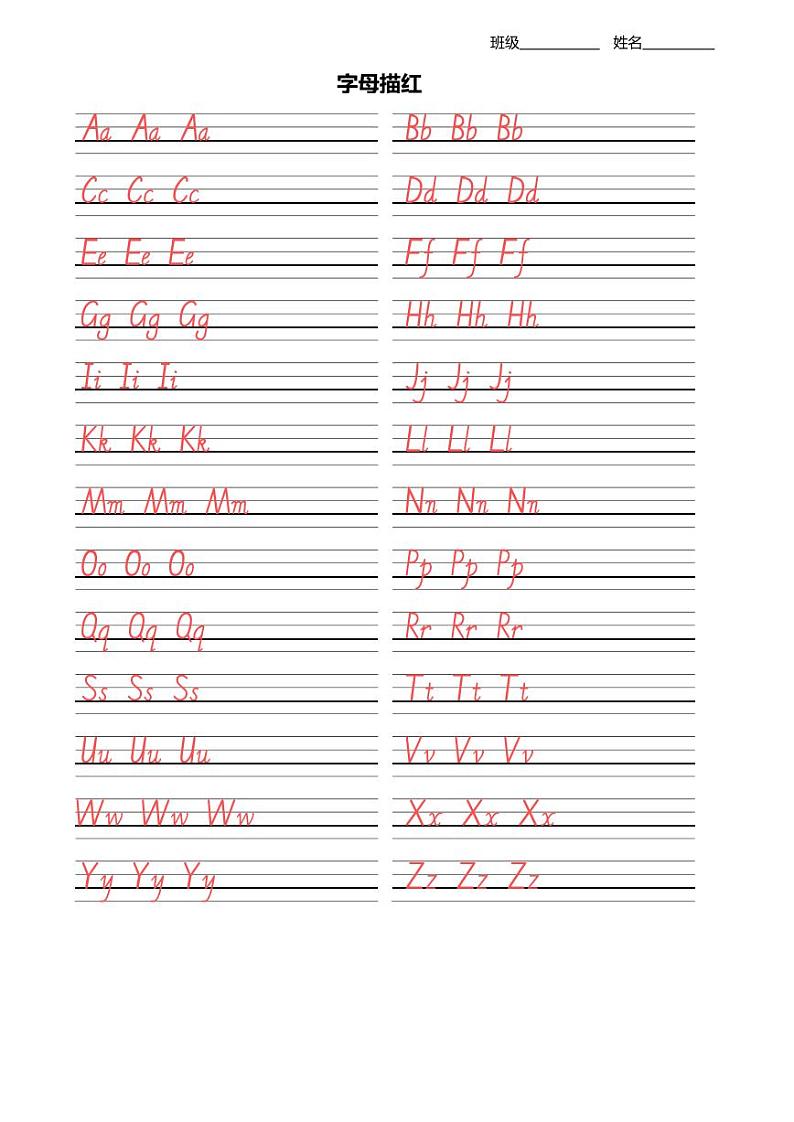 班级__________ 姓名_________
字母描红
Aa Aa Aa Bb Bb Bb
Cc Cc Cc Dd Dd Dd
Ee Ee Ee Ff Ff Ff
Gg Gg Gg Hh Hh Hh
Ii Ii Ii Jj Jj Jj
Kk Kk Kk Ll Ll Ll
Mm Mm Mm Nn Nn Nn
Oo Oo Oo Pp Pp Pp
Qq Qq Qq Rr Rr Rr
Ss Ss Ss Tt Tt Tt
Uu Uu Uu Vv Vv Vv
Ww Ww Ww Xx Xx Xx
Yy Yy Yy Zz Zz Zz